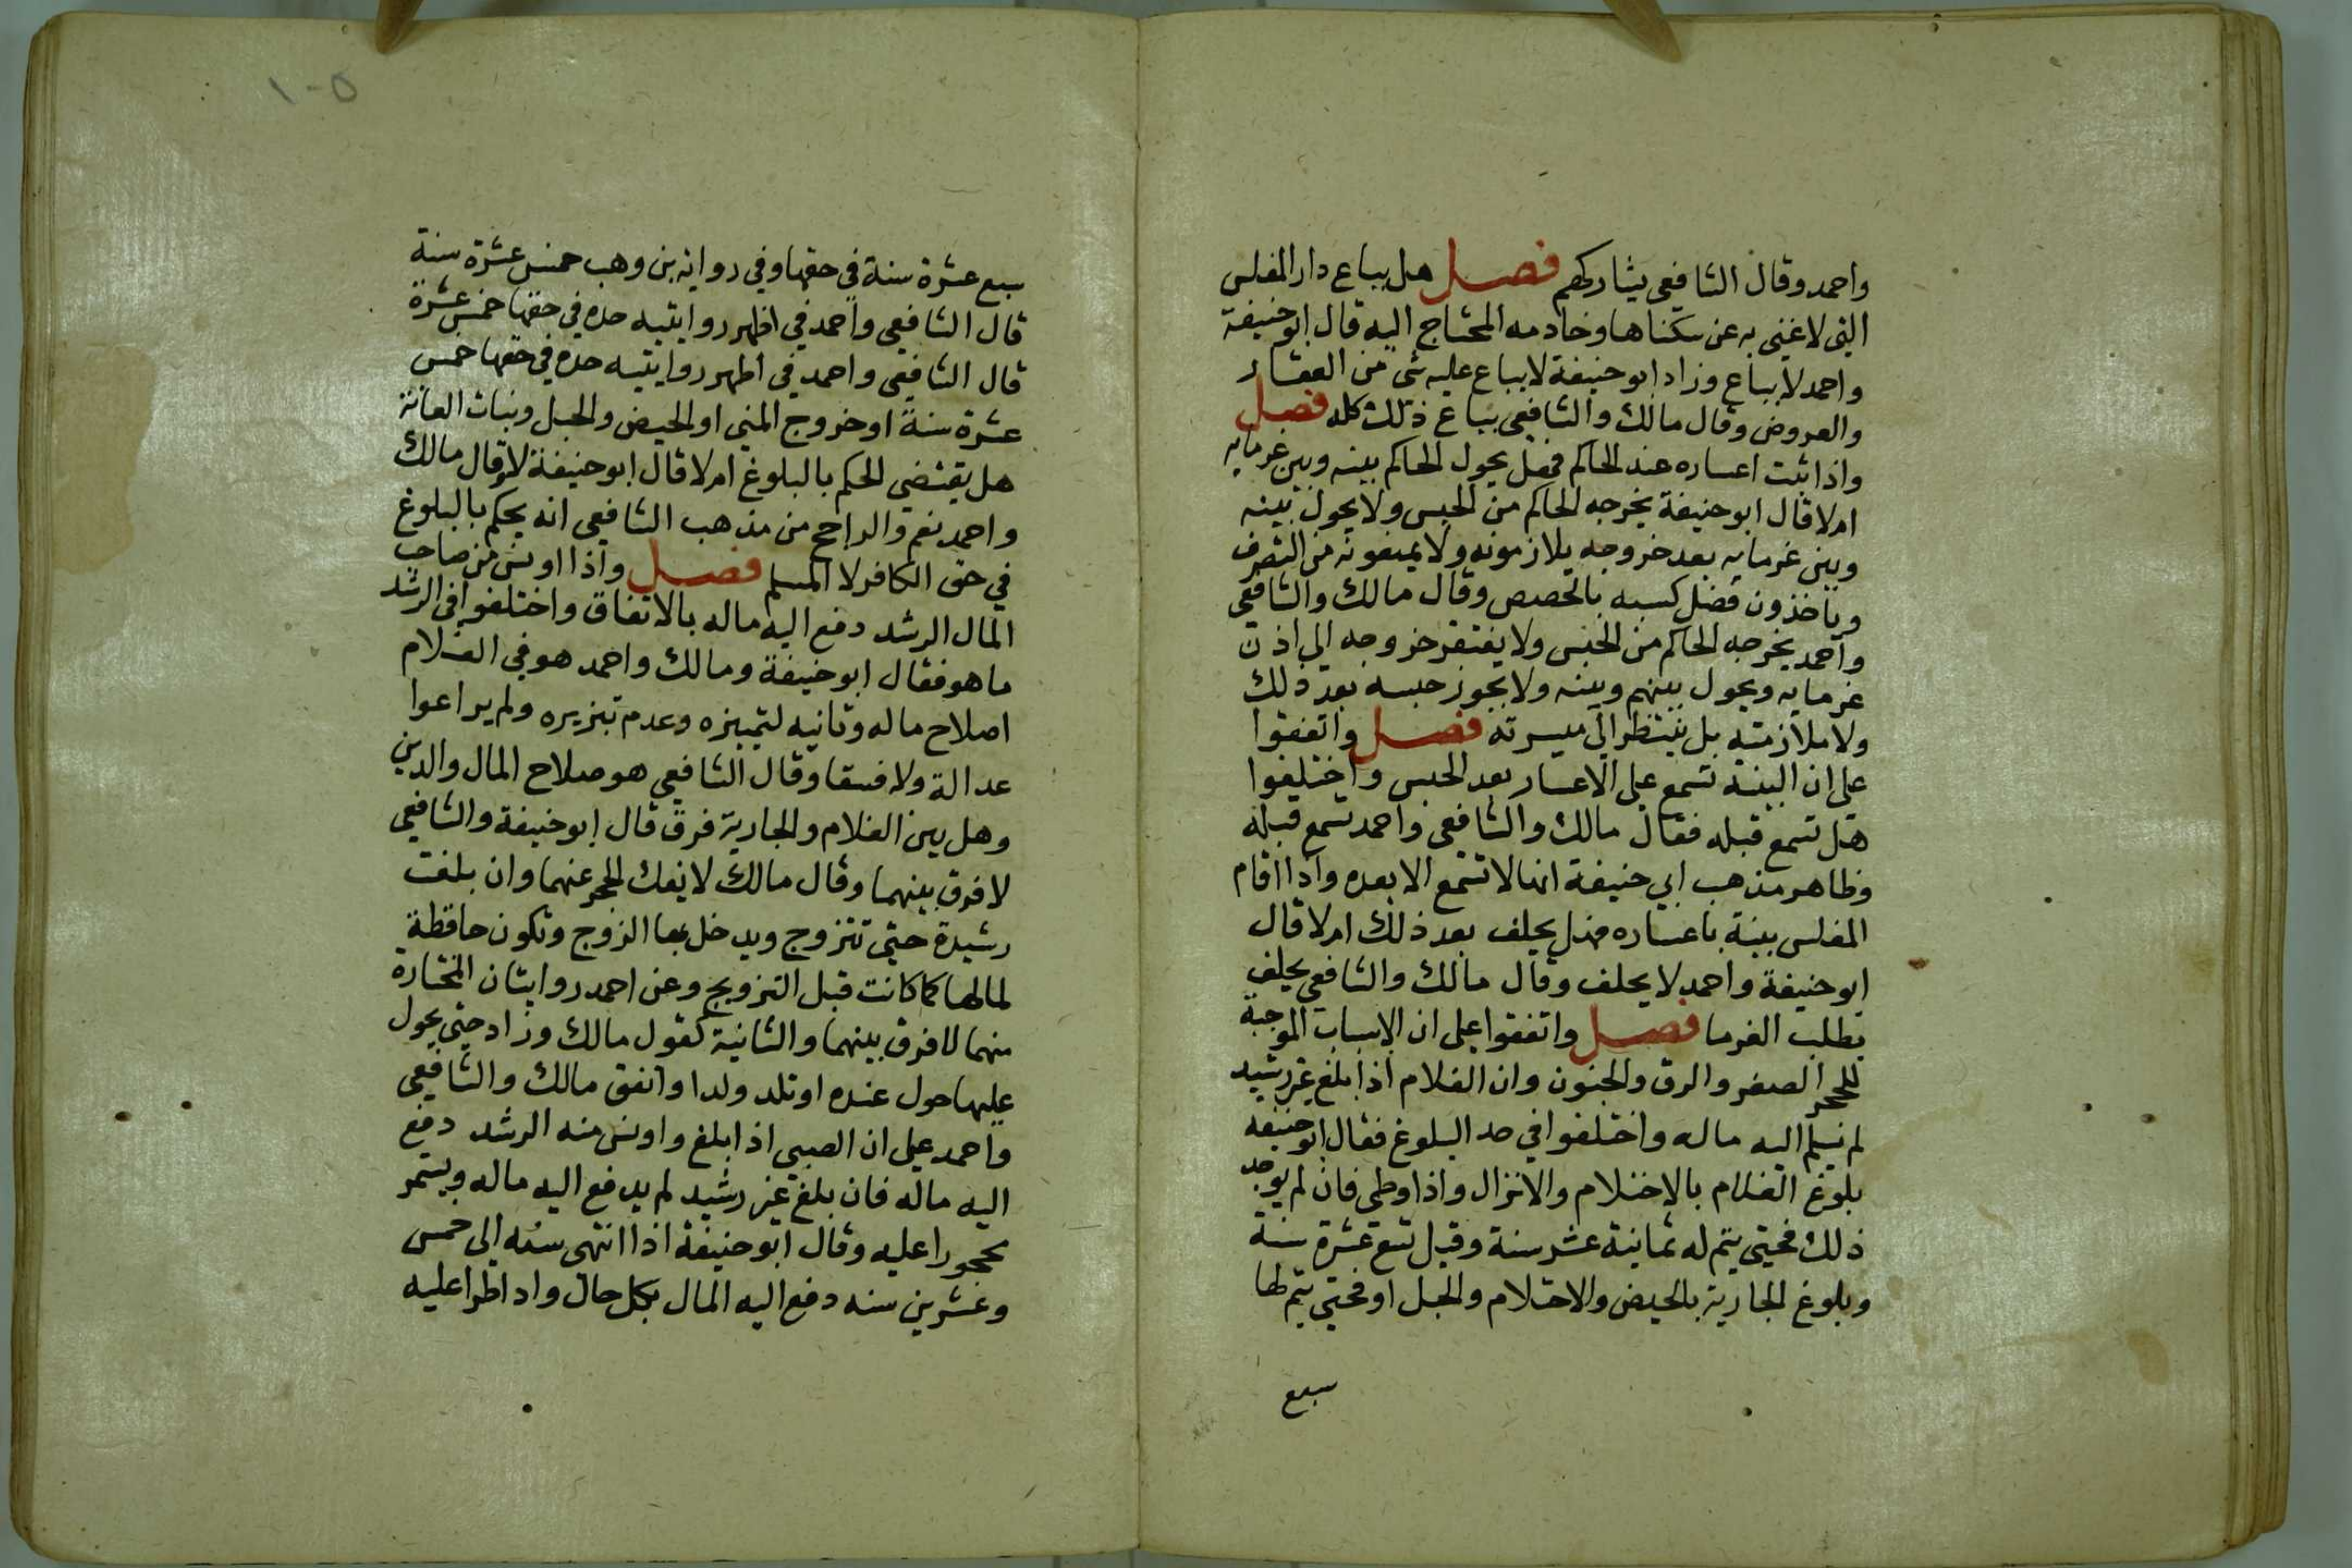 واحمد وقال الشافعي يشاركهم فصل هل يباع دار المفلس
التي لا غنى به عن سكناها وخادمه المحتاج اليه قال ابو حنيفة
واحمد لا يباع وزاد ابو حنيفة لا يباع عليه شئ من العقار
والعروض وقال مالك والشافعي يباع ذلك كله فصل
واذا ثبت اعساره عند الحاكم فهل يحول الحاكم بينه وبين غرمايه
ام لا قال ابو حنيفة يخرجه الحاكم من الحبس ولا يحول بينه
وبين غرمايه بعد خروجه يلازمونه ولا يمنعونه من التصرف
وياخذون فضل كسبه بالحصص وقال مالك والشافعي
واحمد يخرجه الحاكم من الحبس ولا يفتقر خروجه الى اذن
غرمايه ويحول بينهم وبينه ولا يجوز حبسه بعد ذلك
ولا ملازمته بل ينتظر الى ميسرته فصل واتفقوا
على ان البينة تسمع على الاعسار بعد الحبس واختلفوا
هل تسمع قبله فقال مالك والشافعي واحمد تسمع قبله
وظاهر مذهب ابي حنيفة انها لا تسمع الا بعده واذا اقام
المفلس بينة باعساره فهل يحلف بعد ذلك ام لا قال
ابو حنيفة واحمد لا يحلف وقال مالك والشافعي يحلف
بطلب الغرما فصل واتفقوا على ان الاسباب الموجبة
للحجر الصغر والرق والجنون وان الغلام اذا بلغ غير رشيد
لم يسلم اليه ماله واختلفوا في حد البلوغ فقال ابو حنيفه
بلوغ الغلام بالاحتلام والانزال واذا وطى فان لم يوجد
ذلك فحتى يتم له ثمانية عشر سنة وقيل تسع عشرة سنة
وبلوغ الجارية بالحيض والاحتلام والحبل او فحتى يتم لها
سبع
١٠٥
سبع عشرة سنة في حقها وفي روايه بن وهب خمس عشرة سنة
قال الشافعي واحمد في اظهر روايتيه حده في حقها خمس عشرة
قال الشافعي واحمد في اظهر روايتيه حده في حقها خمس
عشرة سنة او خروج المني او الحيض والحبل ونبات العانة
هل يقتضي الحكم بالبلوغ ام لا قال ابو حنيفة لا وقال مالك
واحمد نعم والراجح من مذهب الشافعي انه يحكم بالبلوغ
في حق الكافر لا المسلم فصل واذا اونس من صاحب
المال الرشد دفع اليه ماله بالاتفاق واختلفوا في الرشد
ما هو فقال ابو حنيفة ومالك واحمد هو في الغلام
اصلاح ماله وتانيه لتمييزه وعدم تبزيره ولم يراعوا
عدالة ولا فسقا وقال الشافعي هو صلاح المال والدين
وهل بين الغلام والجارية فرق قال ابو حنيفة والشافعي
لا فرق بينهما وقال مالك لا يفك الحجر عنهما وان بلغت
رشيدة حتى تتزوج ويدخل بها الزوج وتكون حافظة
لمالها كما كانت قبل التزويج وعن احمد روايتان المختارة
منهما لا فرق بينهما والثانية كقول مالك وزاد حتى يحول
عليها حول عنده او تلد ولدا واتفق مالك والشافعي
واحمد على ان الصبي اذا بلغ واونس منه الرشد دفع
اليه ماله فان بلغ غير رشيد لم يدفع اليه ماله ويستمر
محجورا عليه وقال ابو حنيفة اذا انتهى سنه الى خمس
وعشرين سنه دفع اليه المال بكل حال واذا طرا عليه